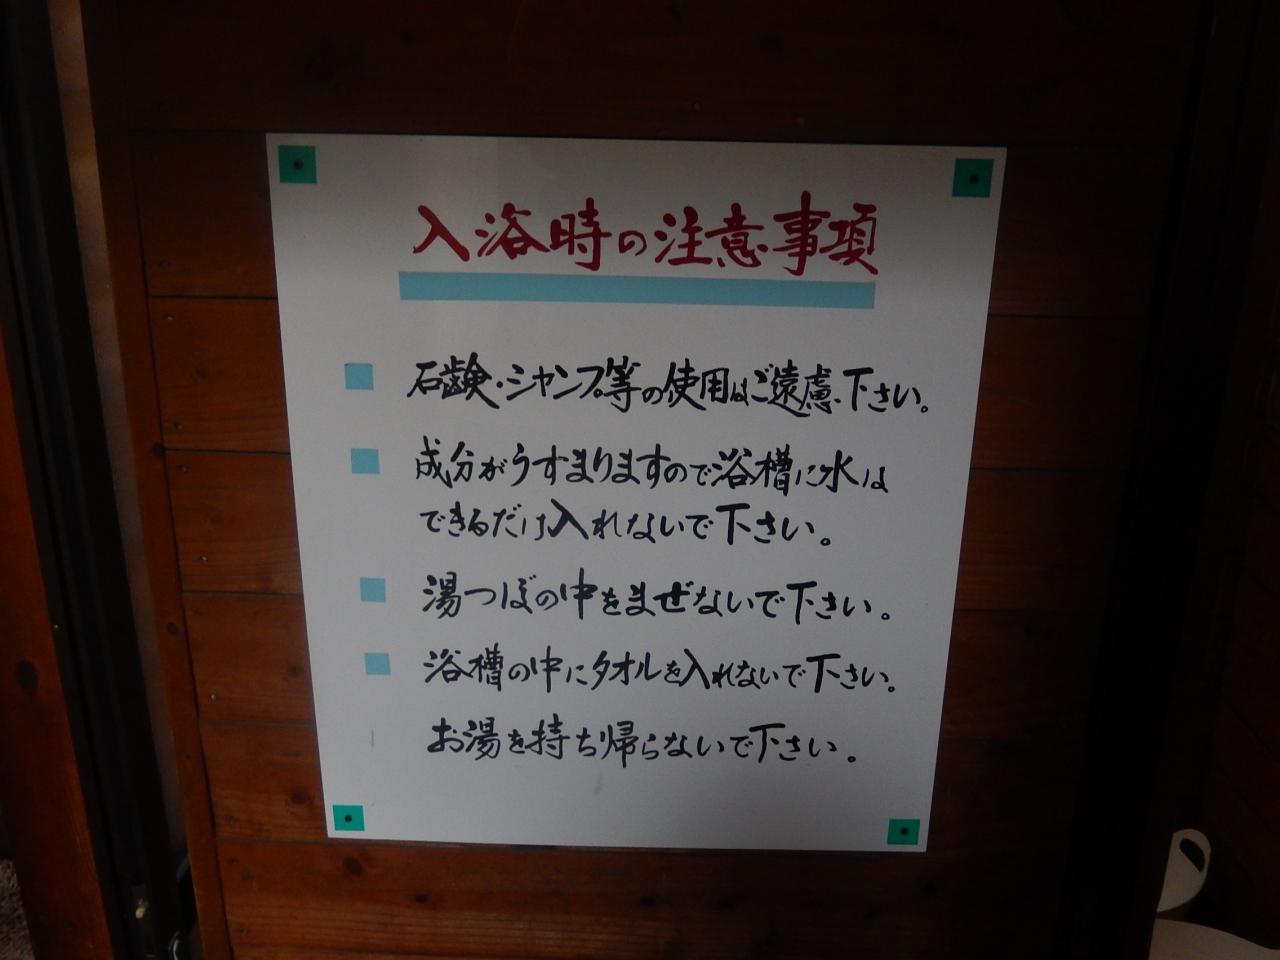 入浴時の注意事項
石鹸・シャンプ等の使用はご遠慮下さい。
成分がうすまりますので浴槽に水は
できるだけ入れないで下さい。
湯つぼの中をまぜないで下さい。
浴槽の中にタオルを入れないで下さい。
お湯を持ち帰らないで下さい。